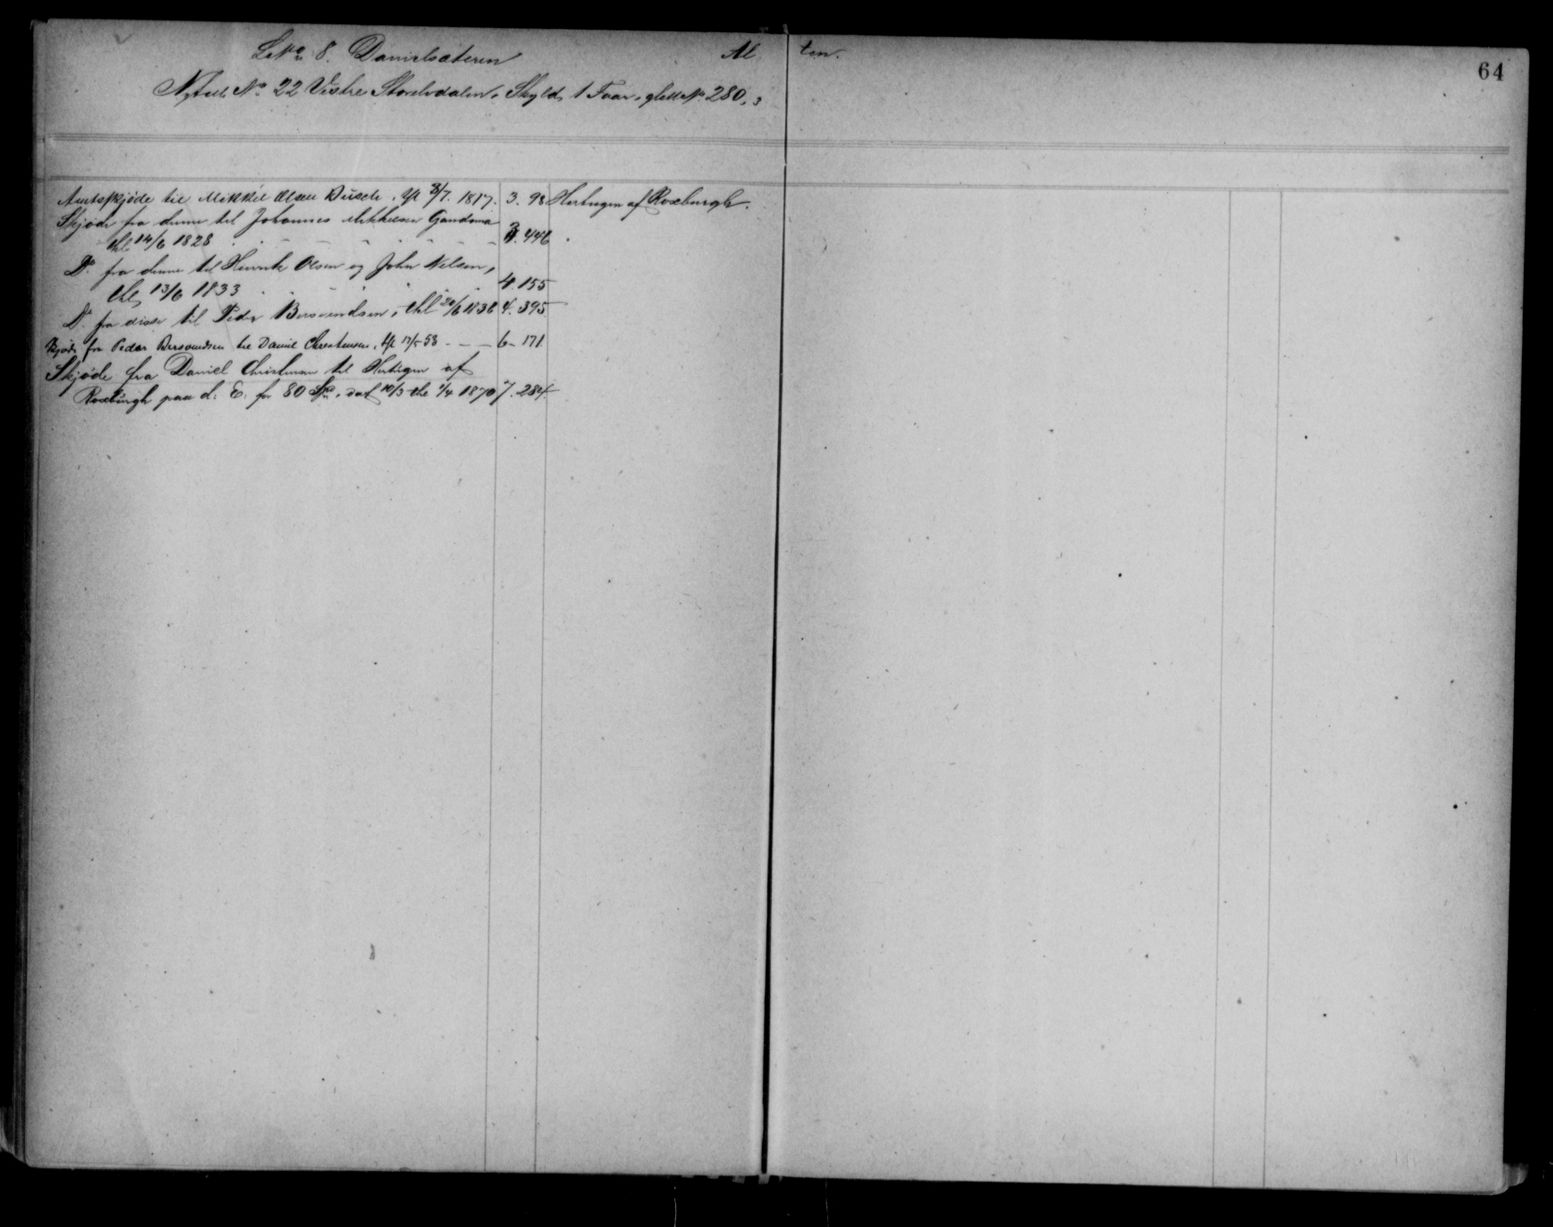 L.No 8. Danielsæteren Al ten.
64
Matr. No 22 Vestre Storelvdalen. Skyld 1 Faar, gl. No 280.
Amtskjøde til Mikkel Olsen 8/7. 1817. 3. 98 Hertugen af Roxburgh.
Skjøde fra denne til Johannes Mikkelsen
thl 14/6 1828 - - - - - 446
Do fra denne til Henrik Olsen og John Nilsen,
thl. 13/6 1833 - - - - 4 155
Do fra disse til Peder Bersvendsen, thl 20/6 1838 4. 395
Skjøde fra Peder Bersvendsen til Daniel Christensen, - 53 - - - 6 - 171
Skjøde fra Daniel Christensen til Hertugen af
Roxburgh paa d. E. for 80 Spd, dat 10/3 thl 1/4 1870 7. 284